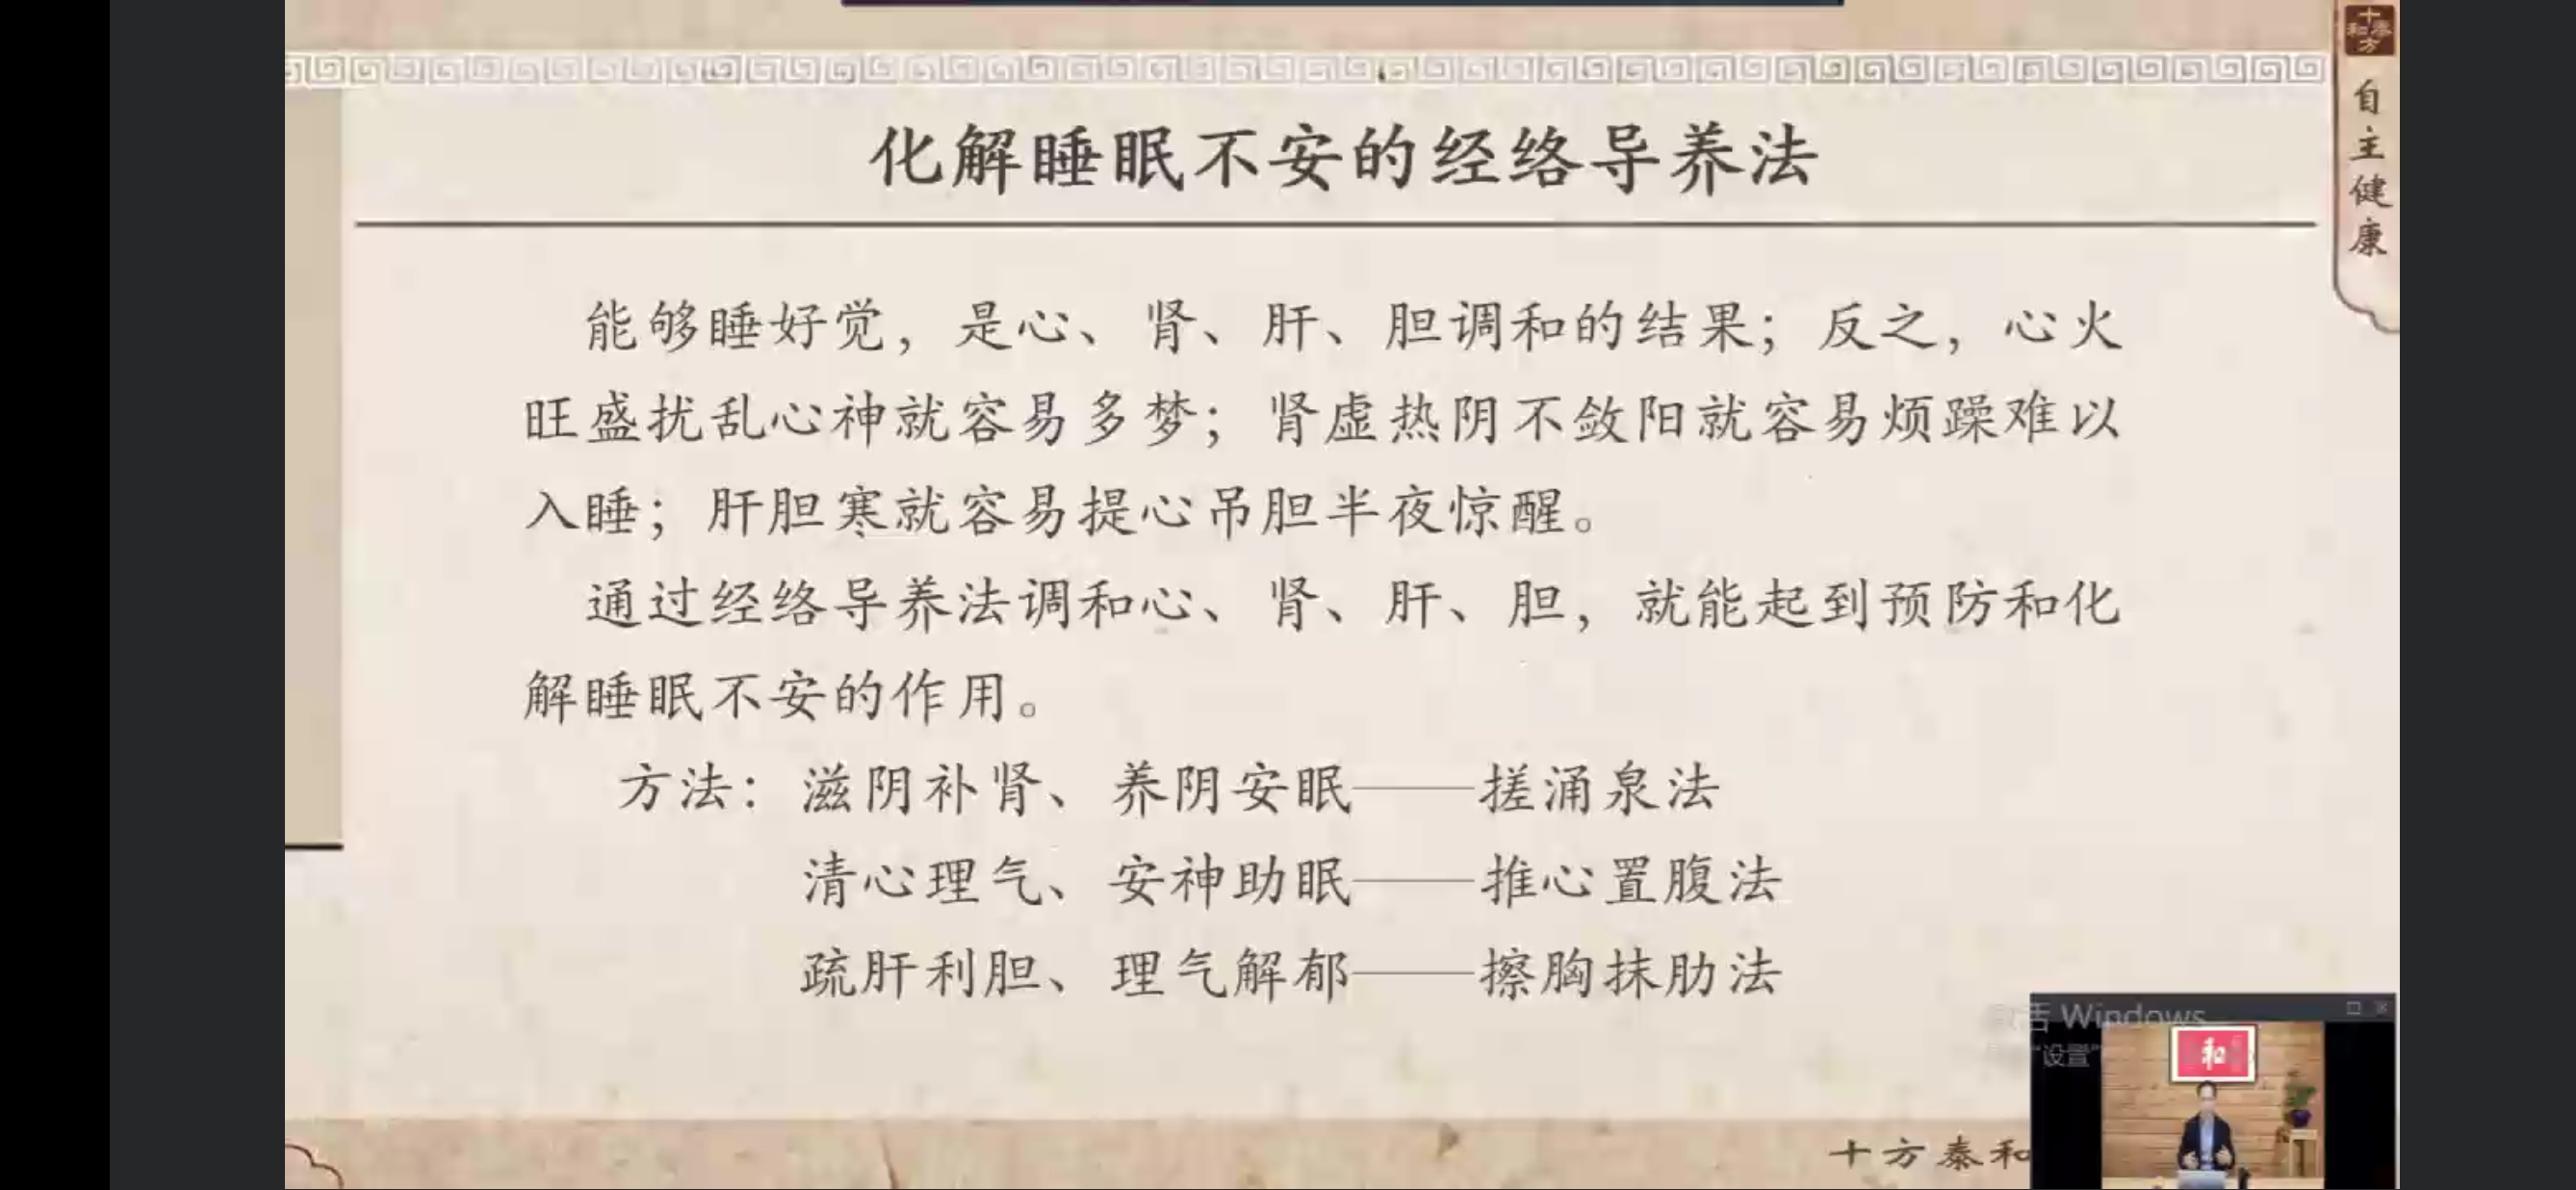 化解睡眠不安的经络导养法
能够睡好觉，是心、肾、肝、胆调和的结果；反之，心火
旺盛扰乱心神就容易多梦；肾虚热阴不敛阳就容易烦躁难以
入睡；肝胆寒就容易提心吊胆半夜惊醒。
通过经络导养法调和心、肾、肝、胆，就能起到预防和化
解睡眠不安的作用。
方法：滋阴补肾、养阴安眠——搓涌泉法
清心理气、安神助眠——推心置腹法
疏肝利胆、理气解郁——擦胸抹肋法
十方泰和
自主健康
十方泰和
活 Windows
"设置"
和